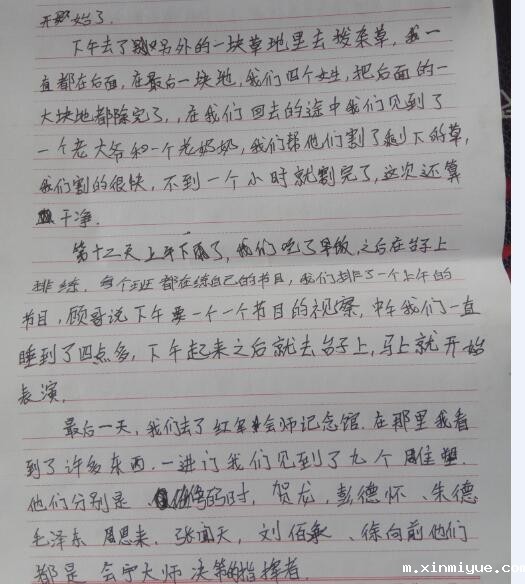 开始了.
下午去了另外的一块草地里去拨杂草,我一
直都在后面,在最后一块地,我们四个女生,把后面的一
大块地都除完了,,在我们回去的途中我们见到了
一个老大爷和一个老奶奶,我们帮他们割了剩下的草,
我们割的很快,不到一个小时就割完了,这次还算
干净.
第十二天上午下雨了,我们吃了早饭,之后在台子上
排练,每个班都在练自己的节目,我们排了一个上午的
节目,顾哥说下午要一个一个节目的视察,中午我们一直
睡到了四点多,下午起来之后就去台子上,马上就开始
表演.
最后一天,我们去了红军会师记念馆.在那里我看
到了许多东西.一进门我们见到了九个雕塑.
他们分别是 时,贺龙,彭德怀、朱德
毛泽东 周恩来.张闻天,刘伯承、徐向前他们
都是会宁大师决策的指挥者.
m.xinmiyue.com